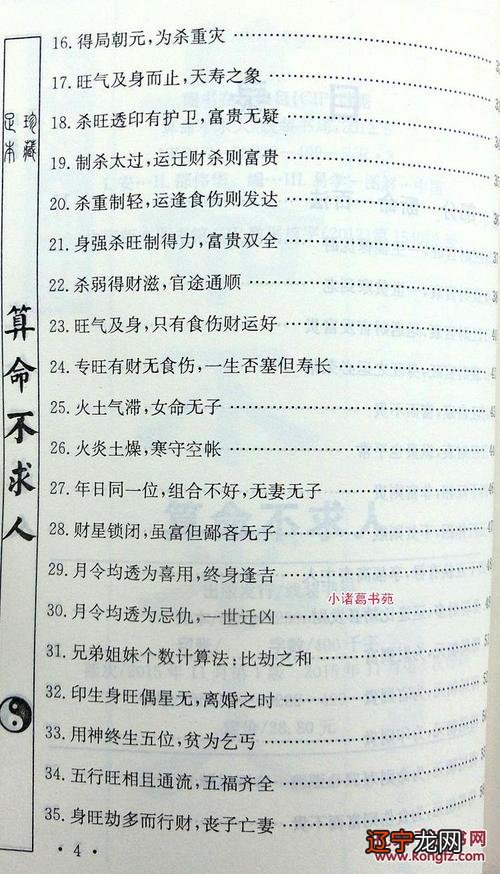 珍藏
足本
算命不求人
16. 得局朝元，为杀重灾
17. 旺气及身而止，天寿之象
18. 杀旺透印有护卫，富贵无疑
19. 制杀太过，运迁财杀则富贵
20. 杀重制轻，运逢食伤则发达
21. 身强杀旺制得力，富贵双全
22. 杀弱得财滋，官途通顺
23. 旺气及身，只有食伤财运好
24. 专旺有财无食伤，一生否塞但寿长
25. 火土气滞，女命无子
26. 火炎土燥，寒守空帐
27. 年日同一位，组合不好，无妻无子
28. 财星锁闭，虽富但鄙吝无子
29. 月令均透为喜用，终身逢吉
小诸葛书苑
30. 月令均透为忌仇，一世迁凶
31. 兄弟姐妹个数计算法：比劫之和
32. 印生身旺偶星无，离婚之时
33. 用神终生五位，贫为乞丐
34. 五行旺相且通流，五福齐全
35. 身旺劫多而行财，丧子亡妻
· 4 ·
辽宁龙网
书网
www.kongfz.com